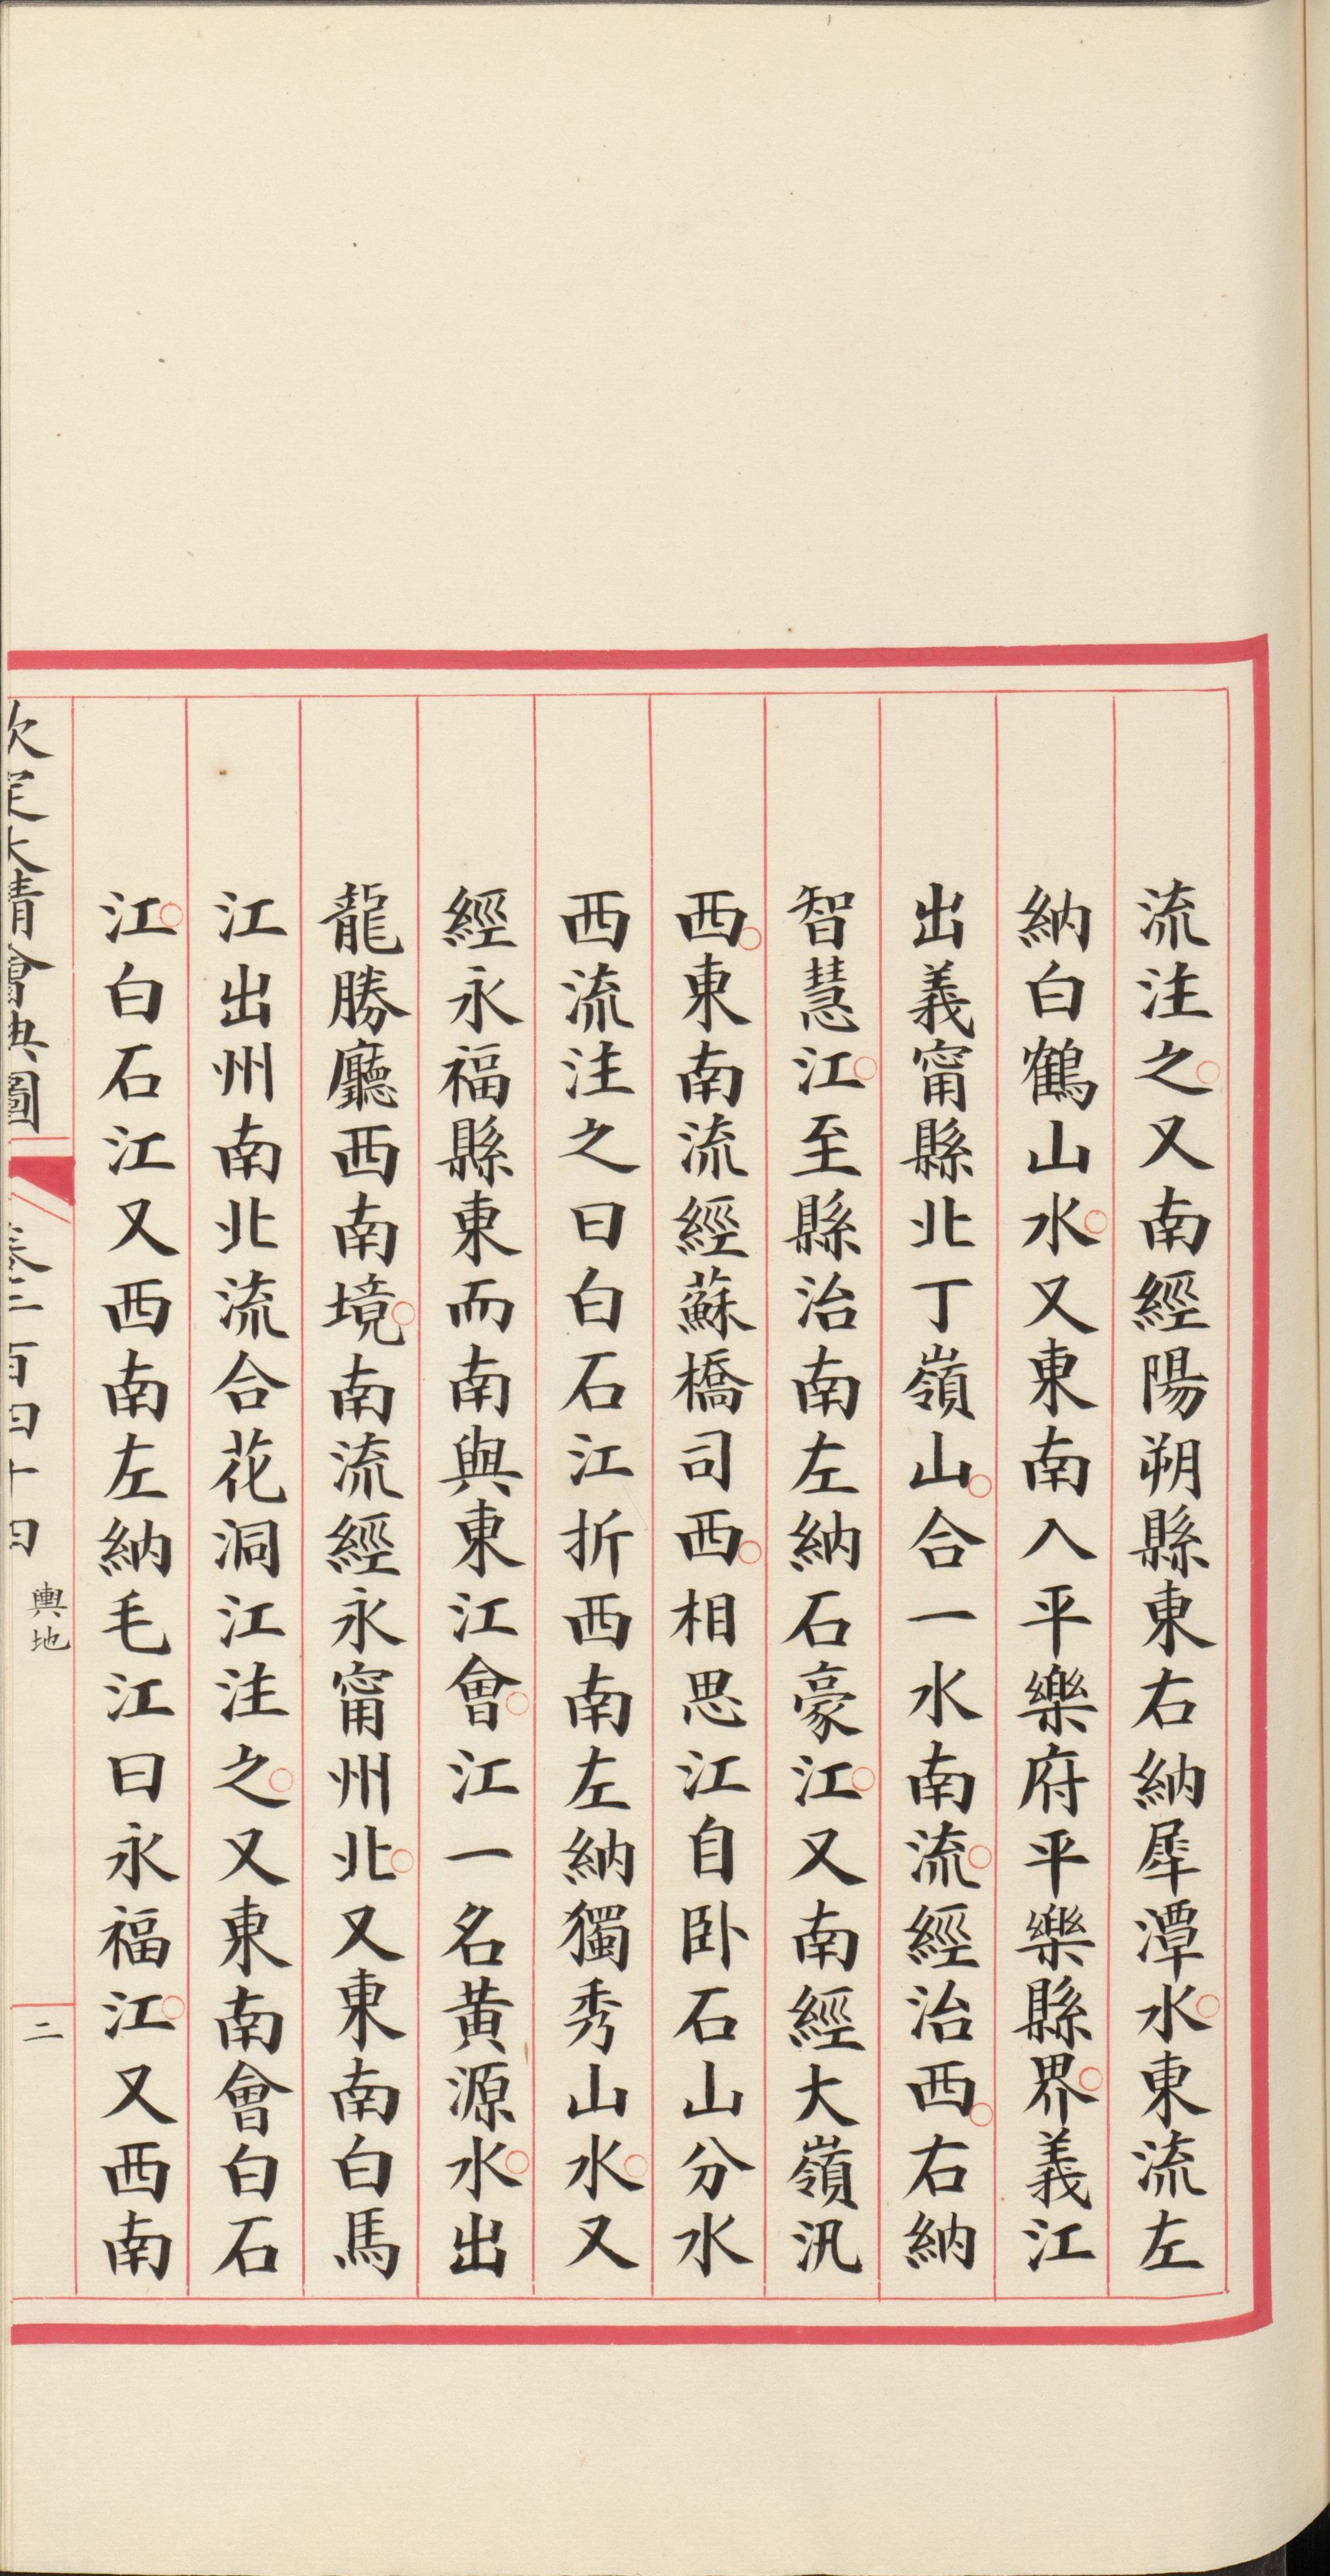 流注之又南經陽朔縣東右納犀潭水東流左
納白鶴山水又東南入平樂府平樂縣界義江
出義甯縣北丁嶺山合一水南流經治西右納
智慧江至縣治南左納石豪江又南經大嶺汛
西東南流經蘇橋司西相思江自卧石山分水
西流注之曰白石江折西南左納獨秀山水又
經永福縣東而南與東江會江一名黃源水出
龍勝廳西南境南流經永甯州北又東南白馬
江出州南北流合花洞江注之又東南會白石
江白石江又西南左納毛江曰永福江又西南
欽定大清會典圖 卷三百四十四 輿地 二